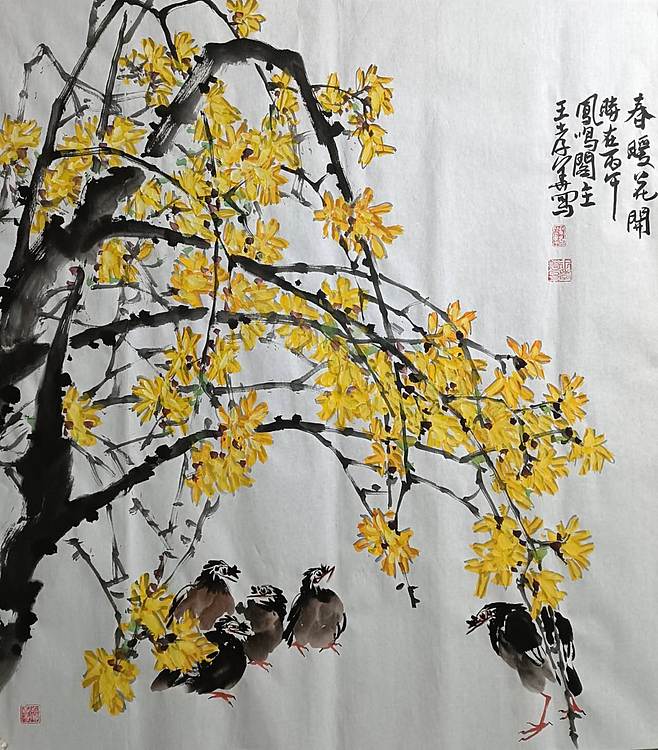 春暖花開
時在丙午
鳳鳴閣主
王寫